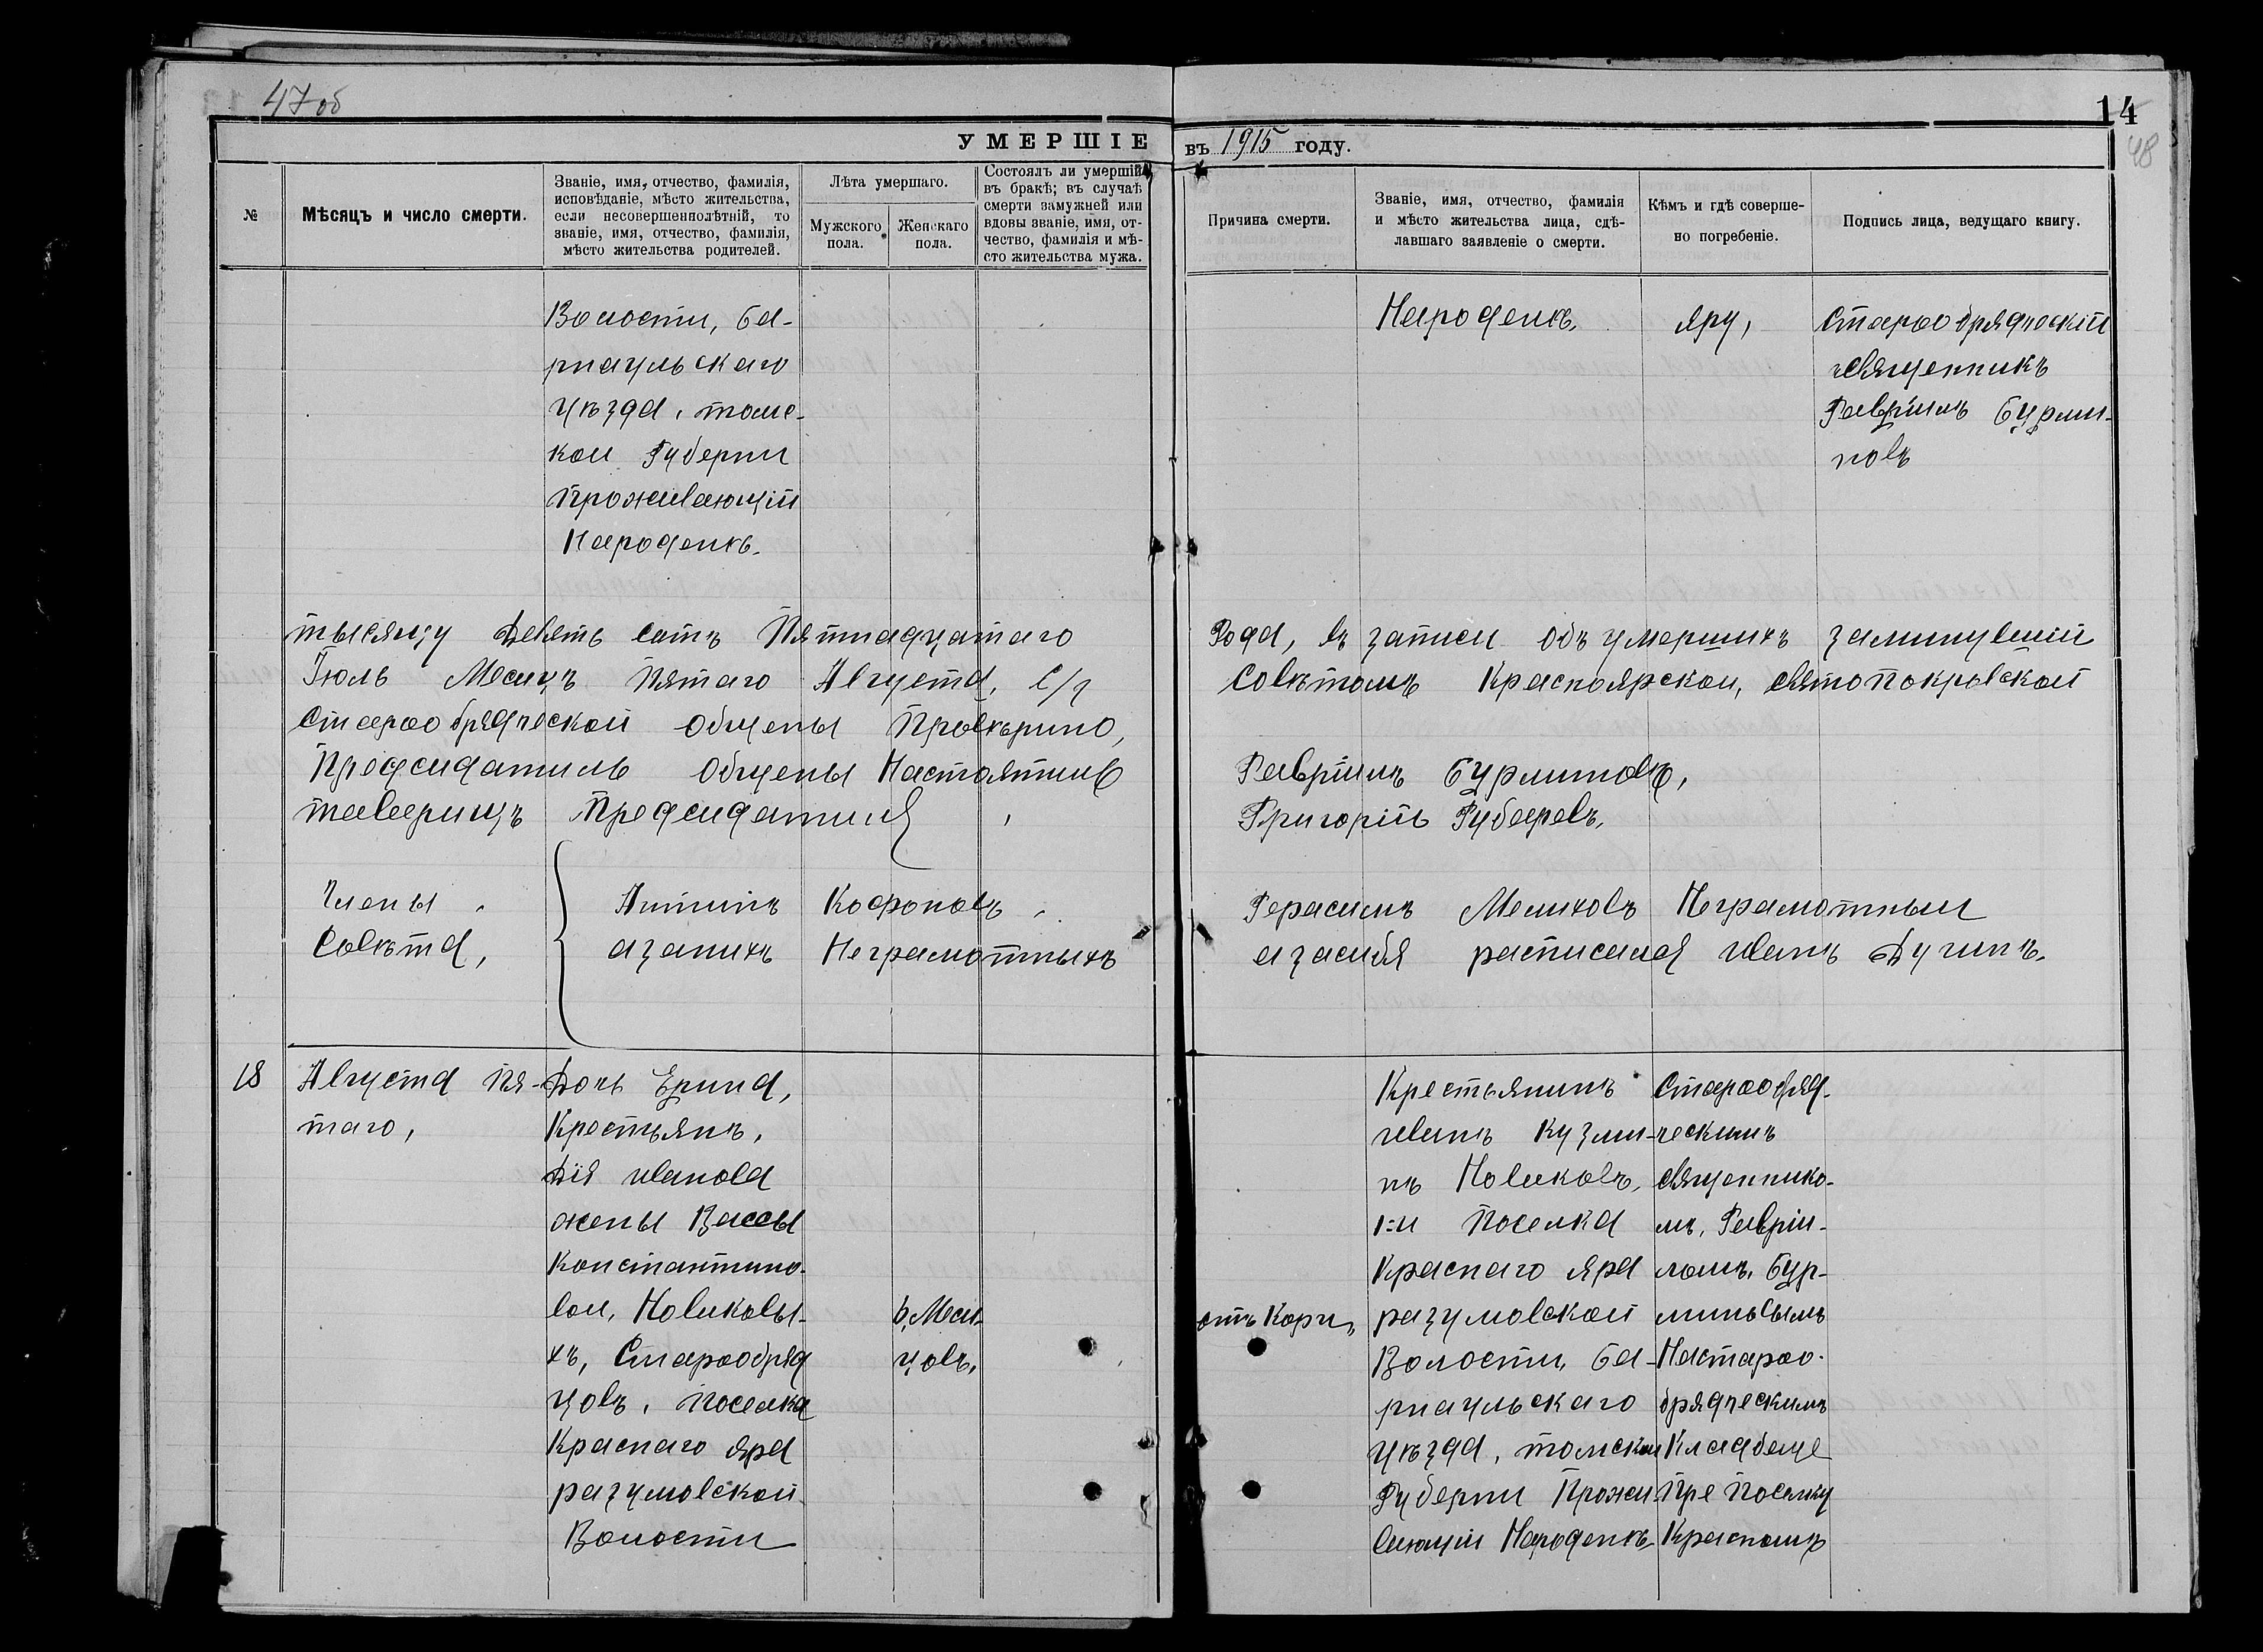 47 об
14
48
УМЕРШІЕ
въ 1915 году.
№
Мѣсяцъ и число смерти.
Званіе, имя, отчество, фамилія,
исповѣданіе, мѣсто жительства,
если несовершеннолѣтній, то
званіе, имя, отчество, фамилія,
мѣсто жительства родителей.
Лѣта умершаго.
Мужского
пола.
Женскаго
пола.
Состоялъ ли умершій
въ бракѣ; въ случаѣ
смерти замужней или
вдовы званіе, имя, от-
чество, фамилія и мѣ-
сто жительства мужа.
Причина смерти.
Званіе, имя, отчество, фамилія
и мѣсто жительства лица, сдѣ-
лавшаго заявленіе о смерти.
Кѣмъ и гдѣ соверше-
но погребеніе.
Подпись лица, ведущаго книгу.
Волости, Ба-
рнаульскаго
уѣзда, томс-
кои Губерни
Проживающій
Народенкѣ.
Народенкѣ.
яру,
Старообрядческій
священникъ
Гавріилъ Бурми-
новъ
тысящу Девять сотъ Пятнадцатаго
Года, въ записи объ умершихъ заминувшій
Іюль Месицъ Пятаго Августа, С/г
Совѣтомъ Красноярской, святопокровской
Старообрядческой общены Провѣрино,
Председатиль общены Настоятиль
Гавріилъ Бурминовъ,
таварищъ Председатиля
Григорій Губаревъ,
Члены
Совѣта,
Антипъ Кофоновъ
азанихъ Неграмотныхъ
Герасимъ Мелиховъ Неграмотныи
азасибя расписался иванъ Дугинъ.
18
Августа Пя-
таго,
Дочь Ерина,
Крестьянъ,
Дія иванова
жены Вассы
Константино-
вои, Новиковы-
хъ, Старообряд
цовъ, Поселка
Краснаго яра
разумовской
Волости
6, Меси-
цовъ,
отъ Кори,
Крестьянинъ
иванъ Кузми-
нъ Новиковъ,
1:и Поселка
Краснаго яра
разумовской
Волости, Ба-
рнаульскаго
уѣзда, томскои
Губерни Прожи-
вающіи Народенкѣ,
Старообряд-
ческимъ
священнико-
мъ, Гавріи-
ломъ, Бур-
миновымъ
Настароо-
брядческимъ
Кладбеще
Пре Поселку
Красномъ